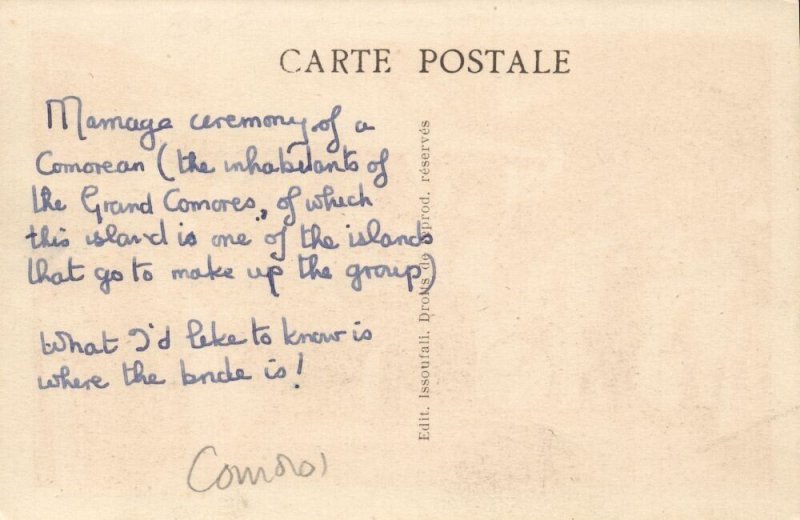 CARTE POSTALE
Marriage ceremony of a
Comorean (the inhabitants of
the Grand Comores, of which
this island is one of the islands
that go to make up the group)
What I'd like to know is
where the bride is!
Comoros
Edit. Issoufali. Droits de reprod. réservés